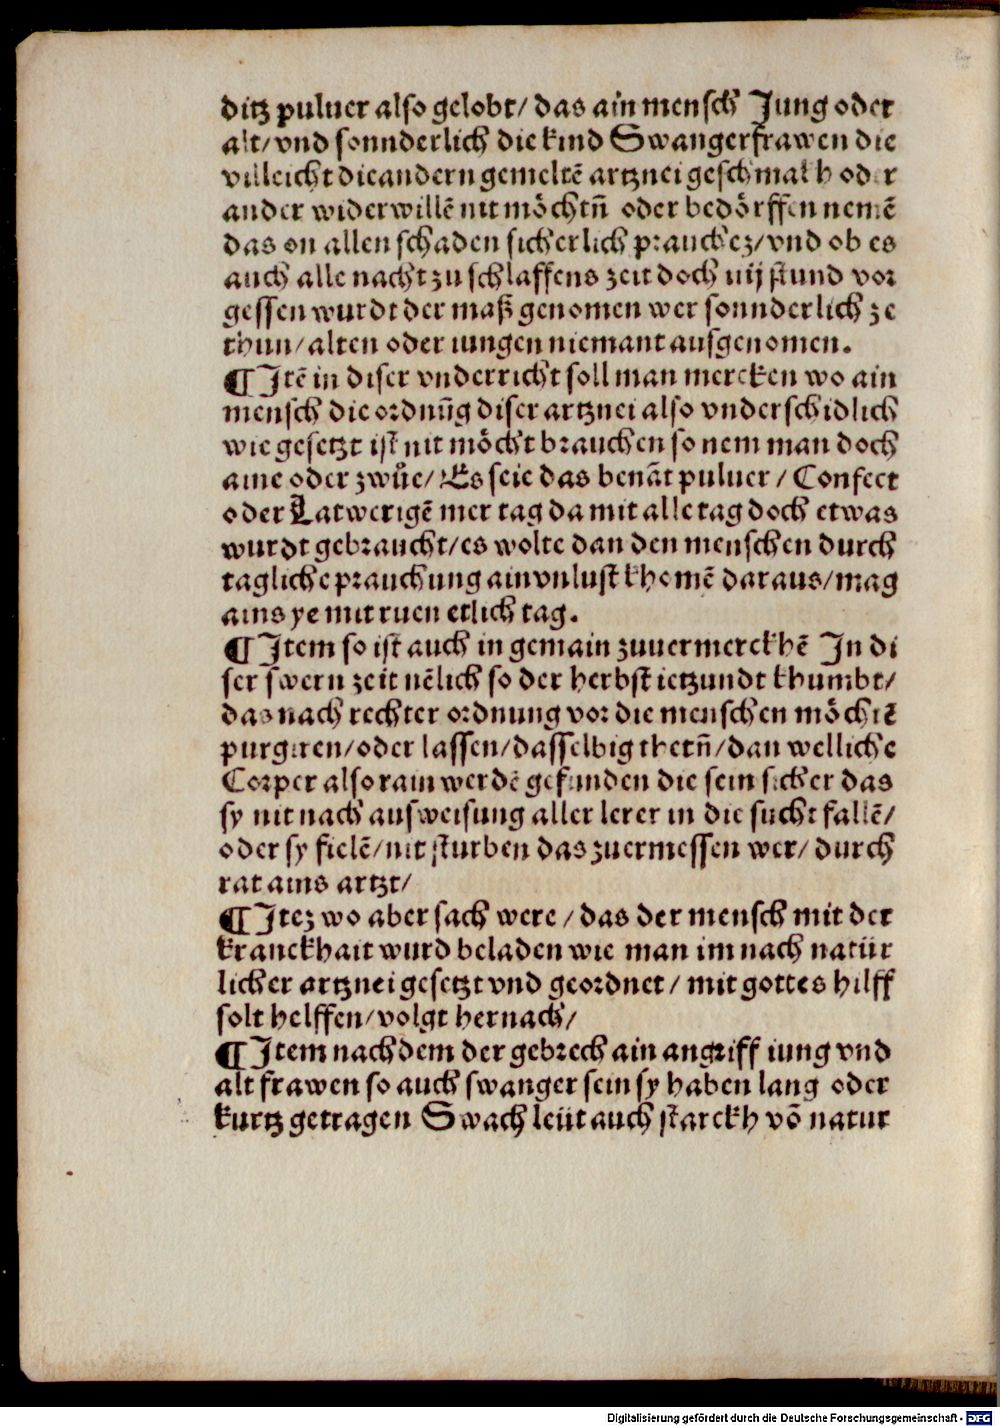 ditz puluer also gelobt/ das ain mensch Jung oder
alt/ vnd sonnderlich die kind Swangerfrawen die
villeicht die andern gemeltē artznei geschmakh oder
ander widerwillē nit möchtn̄ oder bedörffen nemē
das on allen schaden sicherlich prauchez/ vnd ob es
auch alle nacht zu schlaffens zeit doch iiij stund vor
gessen wurdt der maß genomen wer sonnderlich ze
thun/ alten oder iungen niemant ausgenomen.
¶ Jtē in diser vnderricht soll man mercken wo ain
mensch die ordnūg diser artznei also vnderschidlich
wie gesetzt ist nit möcht brauchen so nem man doch
aine oder zwůe/ Es seie das benāt puluer/ Confect
oder Latwerigē mer tag damit alle tag doch etwas
wurdt gebraucht/ es wolte dan den menschen durch
tagliche prauchung ain vnlust khomē daraus/ mag
ains ye mit ruen etlich tag.
¶ Jtem so ist auch in gemain zuuermerckhē Jn di
ser swern zeit nēlich so der herbst ietzundt khumbt/
das nach rechter ordnung vor die menschen möchtē
purgiren/ oder lassen/ dasselbig thetn̄/ dan welliche
Corper also rain werdē gefunden die sein sicher das
sy nit nach ausweisung aller lerer in die sucht fallē/
oder sy fielē/ nit sturben das zuermessen wer/ durch
rat ains artzt/
¶ Jtez wo aber sach were/ das der mensch mit der
kranckhait wurd beladen wie man im nach natür
licher artznei gesetzt vnd geordnet/ mit gottes hilff
solt helffen/ volgt hernach/
¶ Jtem nachdem der gebrech ain angriff iung vnd
alt frawen so auch swanger sein sy haben lang oder
kurtz getragen Swach leüt auch starckh vō natur
Digitalisierung gefördert durch die Deutsche Forschungsgemeinschaft - DFG